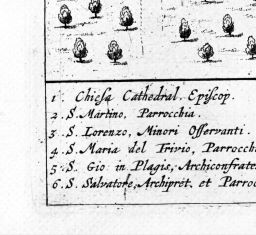 1. Chiesa Cathedral. Episcop.
2. S. Martino, Parrocchia.
3. S. Lorenzo, Minori Osservanti.
4. S. Maria del Trivio, Parrocch
5. S. Gio: in Plagis, Archiconfrate
6. S. Salvatore, Archipret. et Parroc